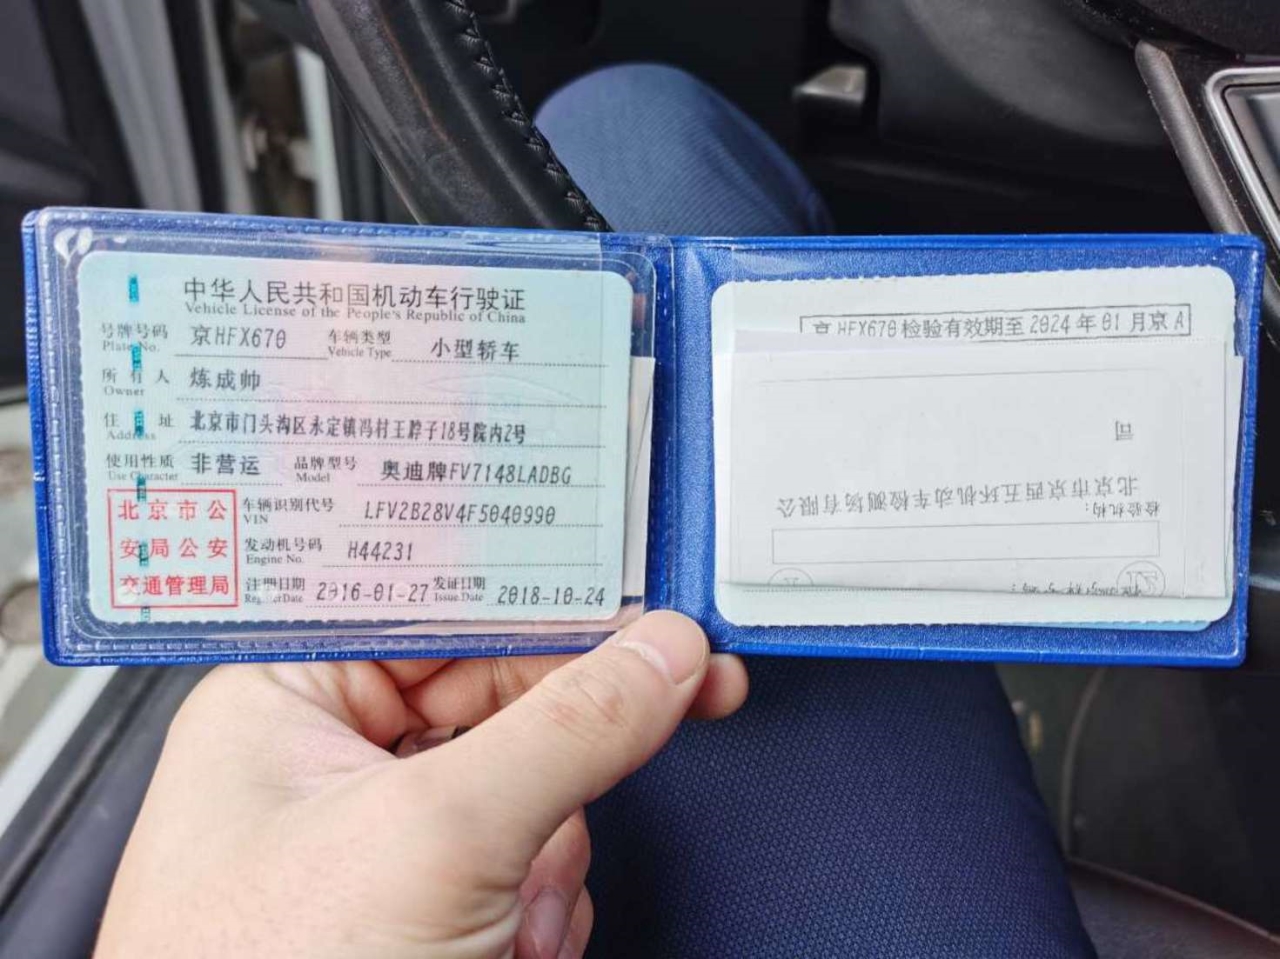 中华人民共和国机动车行驶证
Vehicle License of the People's Republic of China
号牌号码 京HFX670 车辆类型 小型轿车
Plate No. Vehicle Type
所有人 炼成帅
Owner
住址 北京市门头沟区永定镇冯村王脖子18号院内2号
Address
使用性质 非营运 品牌型号 奥迪牌FV7148LADBG
Use Character Model
北京市公
安局公安
交通管理局
车辆识别代号 LFV2B28V4F5040990
VIN
发动机号码 H44231
Engine No.
注册日期 2016-01-27 发证日期 2018-10-24
Register Date Issue Date
京HFX670检验有效期至2024年01月京A
检验机构:
北京市京西五环机动车检测场有限公
司